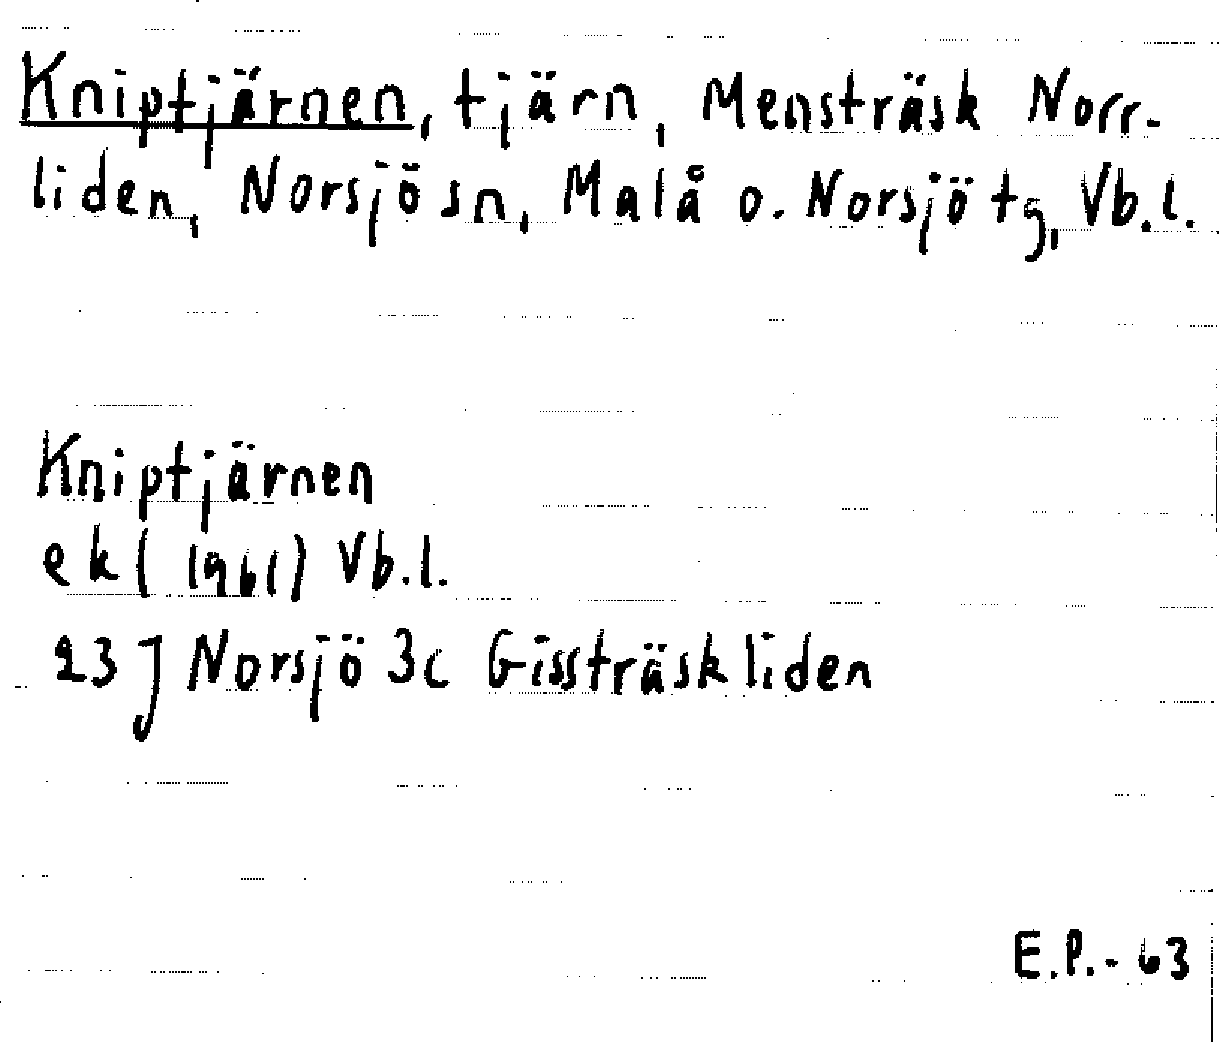 Kniptjärnen, tjärn, Mensträsk Norr-
liden, Norsjö sn, Malå o. Norsjö tg, Vb.l.
Kniptjärnen
ek (1961) Vb.l.
23 J Norsjö 3c Gissträskliden
E.P.-63